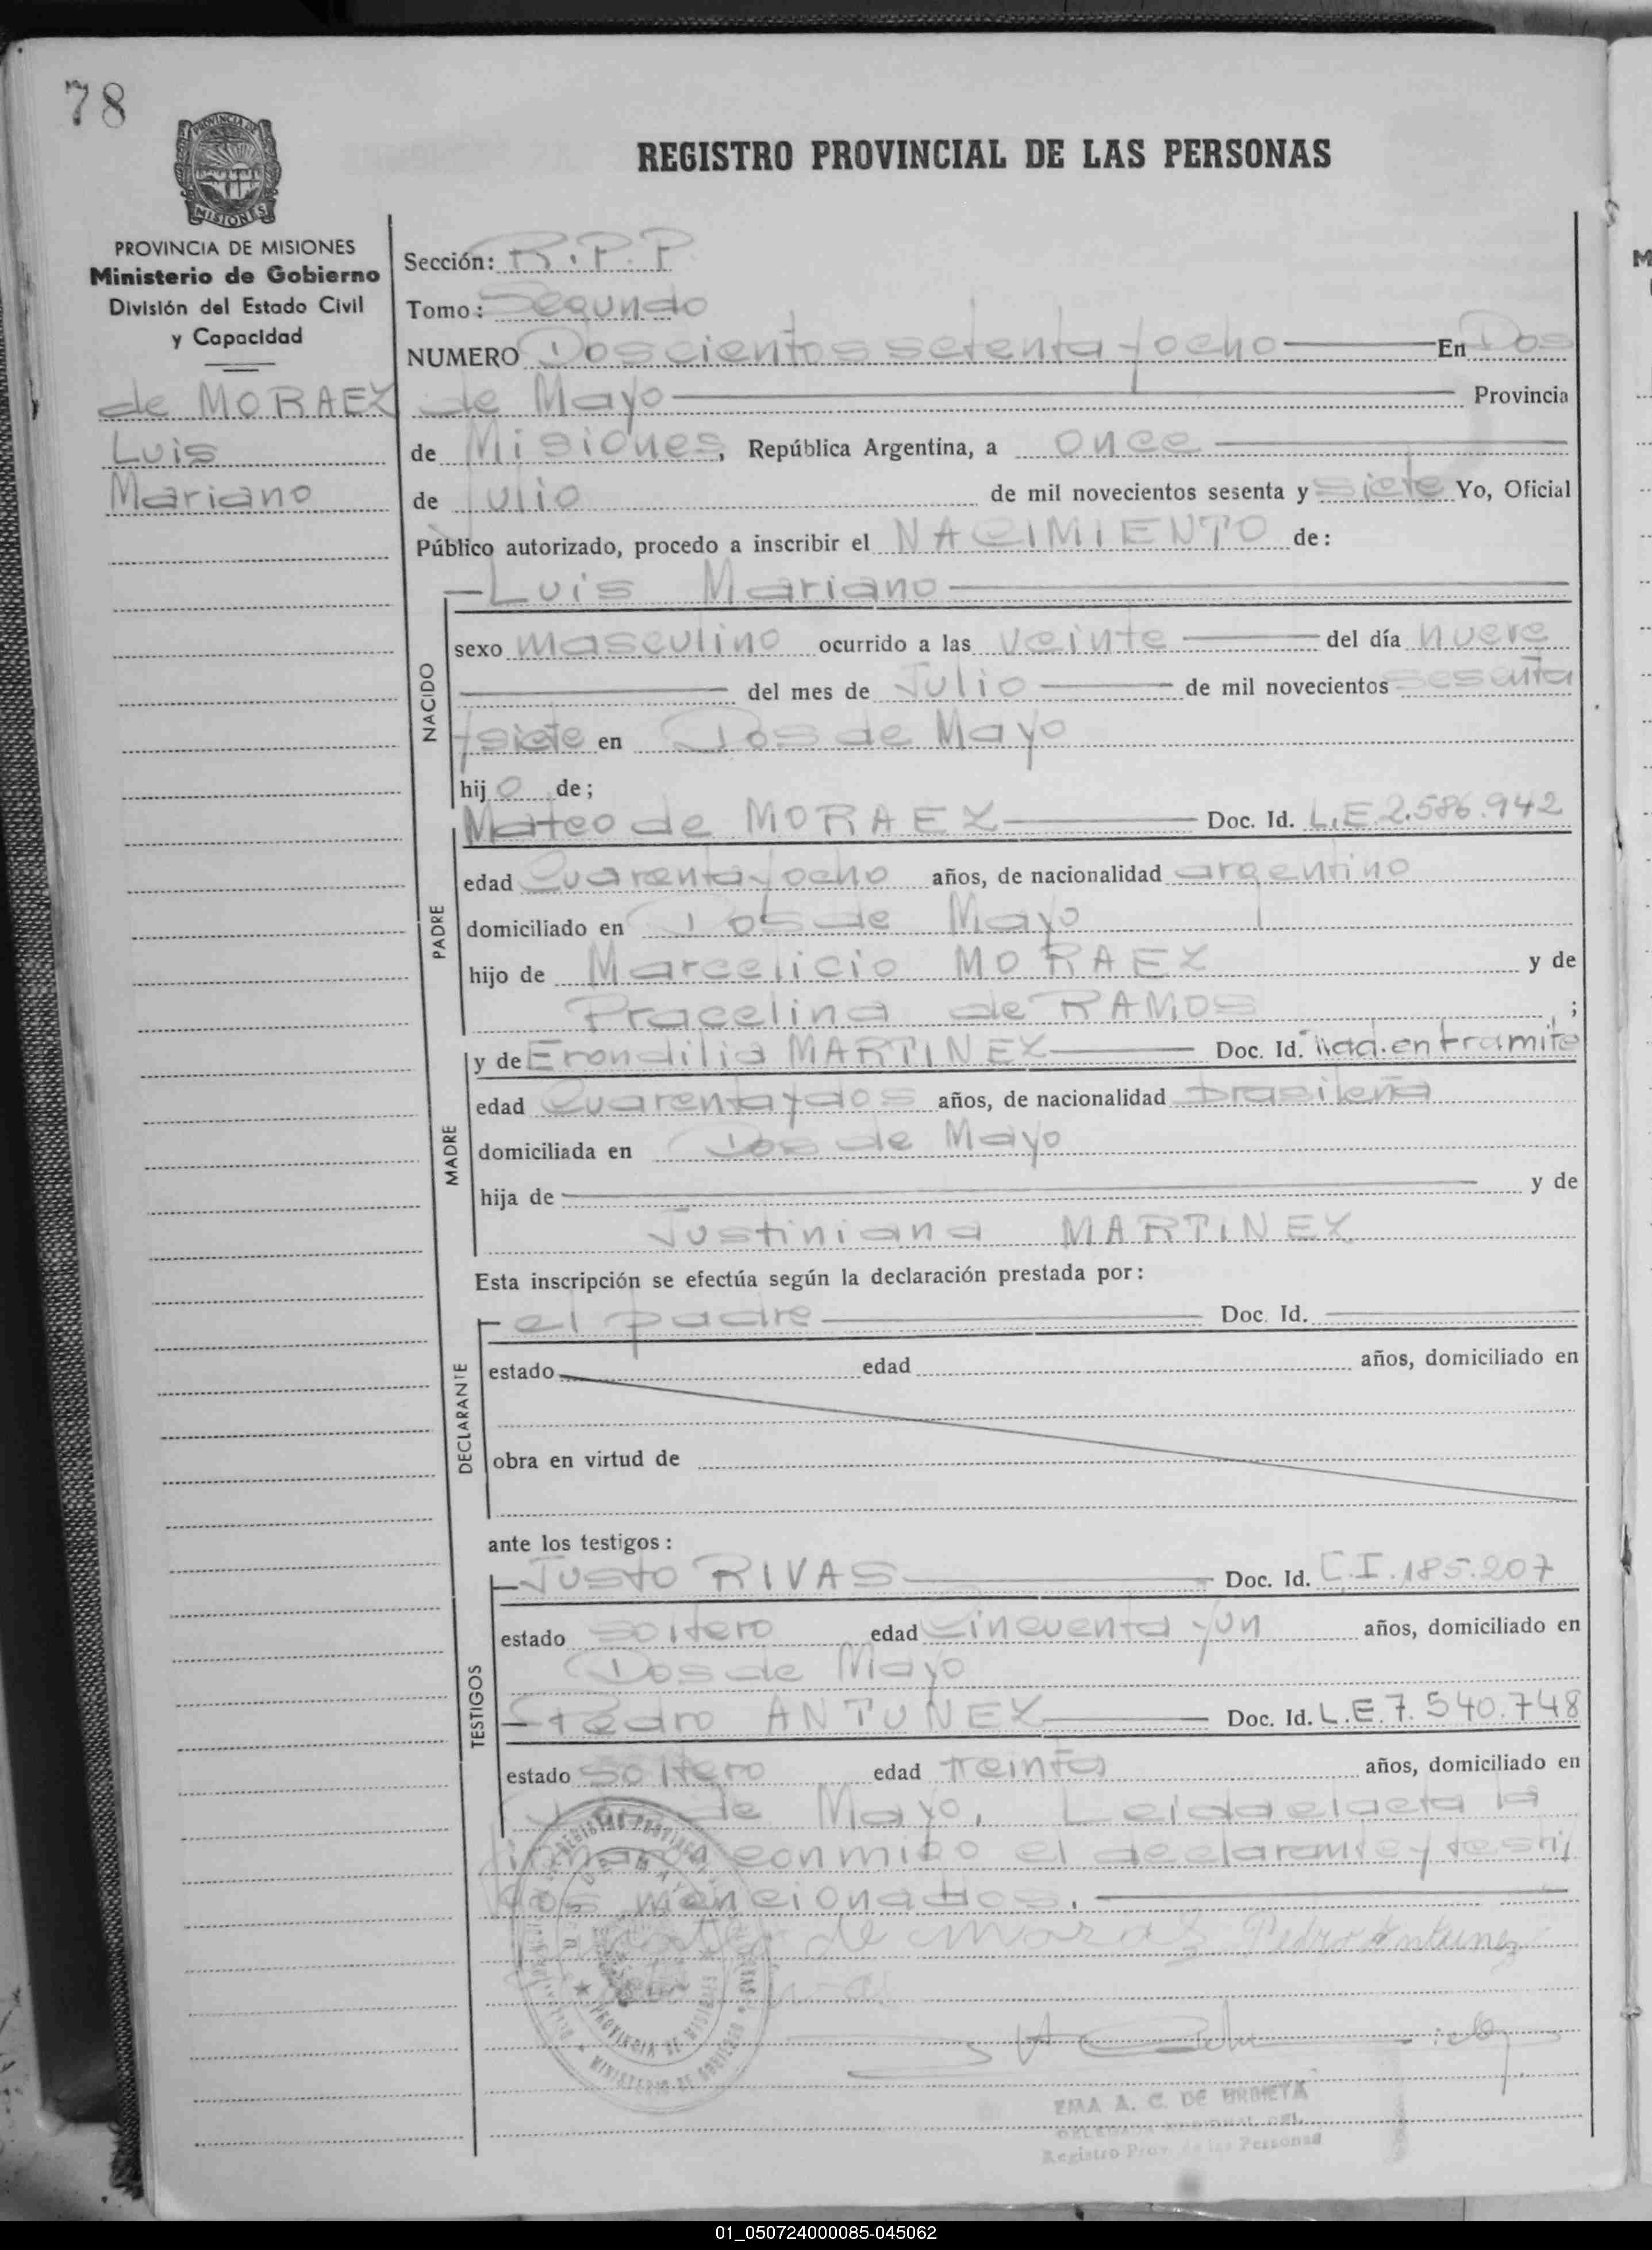 78
REGISTRO PROVINCIAL DE LAS PERSONAS
PROVINCIA DE MISIONES
Ministerio de Gobierno
División del Estado Civil
y Capacidad
de MORAEZ
Luis
Mariano
Sección: R.P.P
Tomo: Segundo
NUMERO Doscientos setenta y ocho En Dos
de Mayo Provincia
de Misiones, República Argentina, a once
de Julio de mil novecientos sesenta y siete Yo, Oficial
Público autorizado, procedo a inscribir el NACIMIENTO de:
Luis Mariano
NACIDO
sexo masculino ocurrido a las veinte del día nueve
del mes de Julio de mil novecientos sesenta
y siete en Dos de Mayo
hijo de;
Mateo de MORAEZ Doc. Id. L.E.2.586.942
PADRE
edad Cuarenta y ocho años, de nacionalidad argentino
domiciliado en Dos de Mayo
hijo de Marcelicio MORAEZ y de
Pracelina de RAMOS ;
y de Erondilia MARTINEZ Doc. Id. Nad.en tramite
MADRE
edad Cuarenta y dos años, de nacionalidad brasileña
domiciliada en Dos de Mayo
hija de y de
Justiniana MARTINEZ
Esta inscripción se efectúa según la declaración prestada por:
el padre Doc. Id.
DECLARANTE
estado edad años, domiciliado en
obra en virtud de
ante los testigos:
Justo RIVAS Doc. Id. C.I.185.207
TESTIGOS
estado soltero edad cincuenta y un años, domiciliado en
Dos de Mayo
Pedro ANTUNEZ Doc. Id. L.E.7.540.748
estado soltero edad treinta años, domiciliado en
de Mayo. Leida el acta la
firmaron conmigo el declarante y testi
gos mencionados.
de Moraez Pedro Antunez
PROVINCIA DE MISIONES
MINISTERIO DE GOBIERNO
EMA A. C. DE URDIETA
Registro Prov. de las Personas
01_050724000085-045062